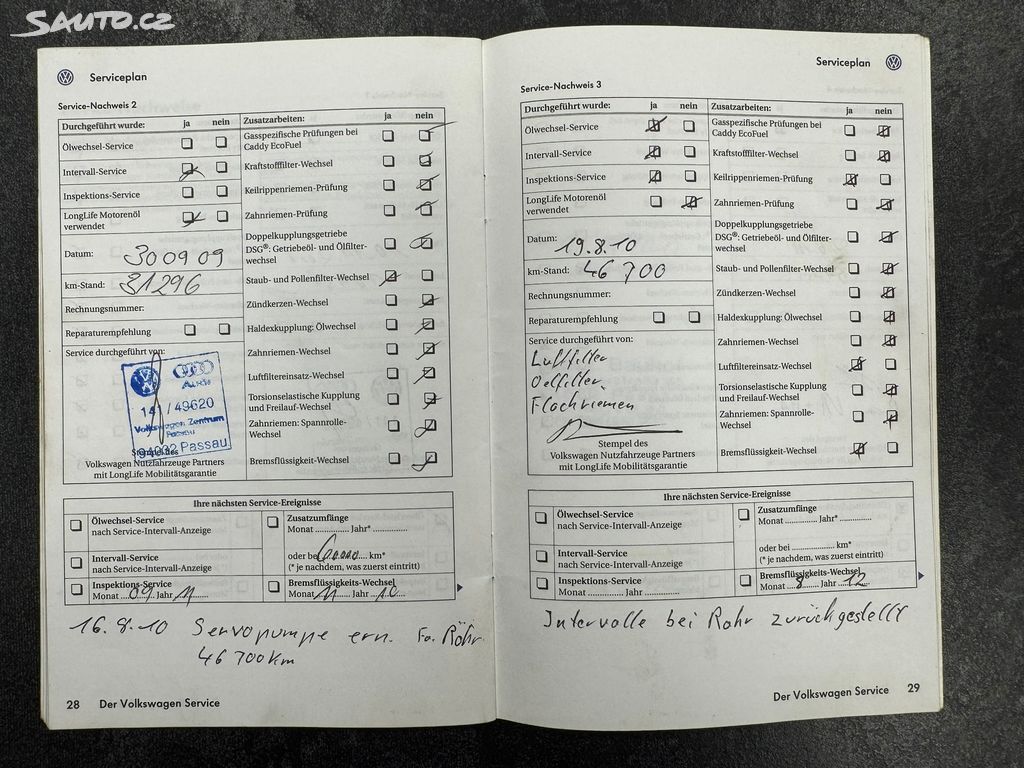 SAUTO.CZ
Serviceplan
Service-Nachweis 2
Durchgeführt wurde: ja nein
Ölwechsel-Service
Intervall-Service
Inspektions-Service
LongLife Motorenöl
verwendet
Datum: 30 09 09
km-Stand: 31296
Rechnungsnummer:
Reparaturempfehlung
Service durchgeführt von:
Audi
141 / 49620
Volkswagen Zentrum
Passau
94032 Passau
Stempel des
Volkswagen Nutzfahrzeuge Partners
mit LongLife Mobilitätsgarantie
Zusatzarbeiten: ja nein
Gasspezifische Prüfungen bei
Caddy EcoFuel
Kraftstofffilter-Wechsel
Keilrippenriemen-Prüfung
Zahnriemen-Prüfung
Doppelkupplungsgetriebe
DSG®: Getriebeöl- und Ölfilter-
wechsel
Staub- und Pollenfilter-Wechsel
Zündkerzen-Wechsel
Haldexkupplung: Ölwechsel
Zahnriemen-Wechsel
Luftfiltereinsatz-Wechsel
Torsionselastische Kupplung
und Freilauf-Wechsel
Zahnriemen: Spannrolle-
Wechsel
Bremsflüssigkeit-Wechsel
Ihre nächsten Service-Ereignisse
Ölwechsel-Service
nach Service-Intervall-Anzeige
Intervall-Service
nach Service-Intervall-Anzeige
Inspektions-Service
Monat 09 Jahr 11
Zusatzumfänge
Monat ............. Jahr* ..............
oder bei 60.000 km*
(* je nachdem, was zuerst eintritt)
Bremsflüssigkeits-Wechsel
Monat 11 Jahr 10
16.8.10 Servopumpe ern. Fa. Röhr
46 700 km
28 Der Volkswagen Service
Serviceplan
Service-Nachweis 3
Durchgeführt wurde: ja nein
Ölwechsel-Service
Intervall-Service
Inspektions-Service
LongLife Motorenöl
verwendet
Datum: 19.8.10
km-Stand: 46 700
Rechnungsnummer:
Reparaturempfehlung
Service durchgeführt von:
Luftfilter
Oelfilter
Flachriemen
Stempel des
Volkswagen Nutzfahrzeuge Partners
mit LongLife Mobilitätsgarantie
Zusatzarbeiten: ja nein
Gasspezifische Prüfungen bei
Caddy EcoFuel
Kraftstofffilter-Wechsel
Keilrippenriemen-Prüfung
Zahnriemen-Prüfung
Doppelkupplungsgetriebe
DSG®: Getriebeöl- und Ölfilter-
wechsel
Staub- und Pollenfilter-Wechsel
Zündkerzen-Wechsel
Haldexkupplung: Ölwechsel
Zahnriemen-Wechsel
Luftfiltereinsatz-Wechsel
Torsionselastische Kupplung
und Freilauf-Wechsel
Zahnriemen: Spannrolle-
Wechsel
Bremsflüssigkeit-Wechsel
Ihre nächsten Service-Ereignisse
Ölwechsel-Service
nach Service-Intervall-Anzeige
Intervall-Service
nach Service-Intervall-Anzeige
Inspektions-Service
Monat ............. Jahr ..............
Zusatzumfänge
Monat ............. Jahr* ..............
oder bei ................. km*
(* je nachdem, was zuerst eintritt)
Bremsflüssigkeits-Wechsel
Monat 8 Jahr 12
Intervalle bei Rohr zurückgestellt
Der Volkswagen Service 29